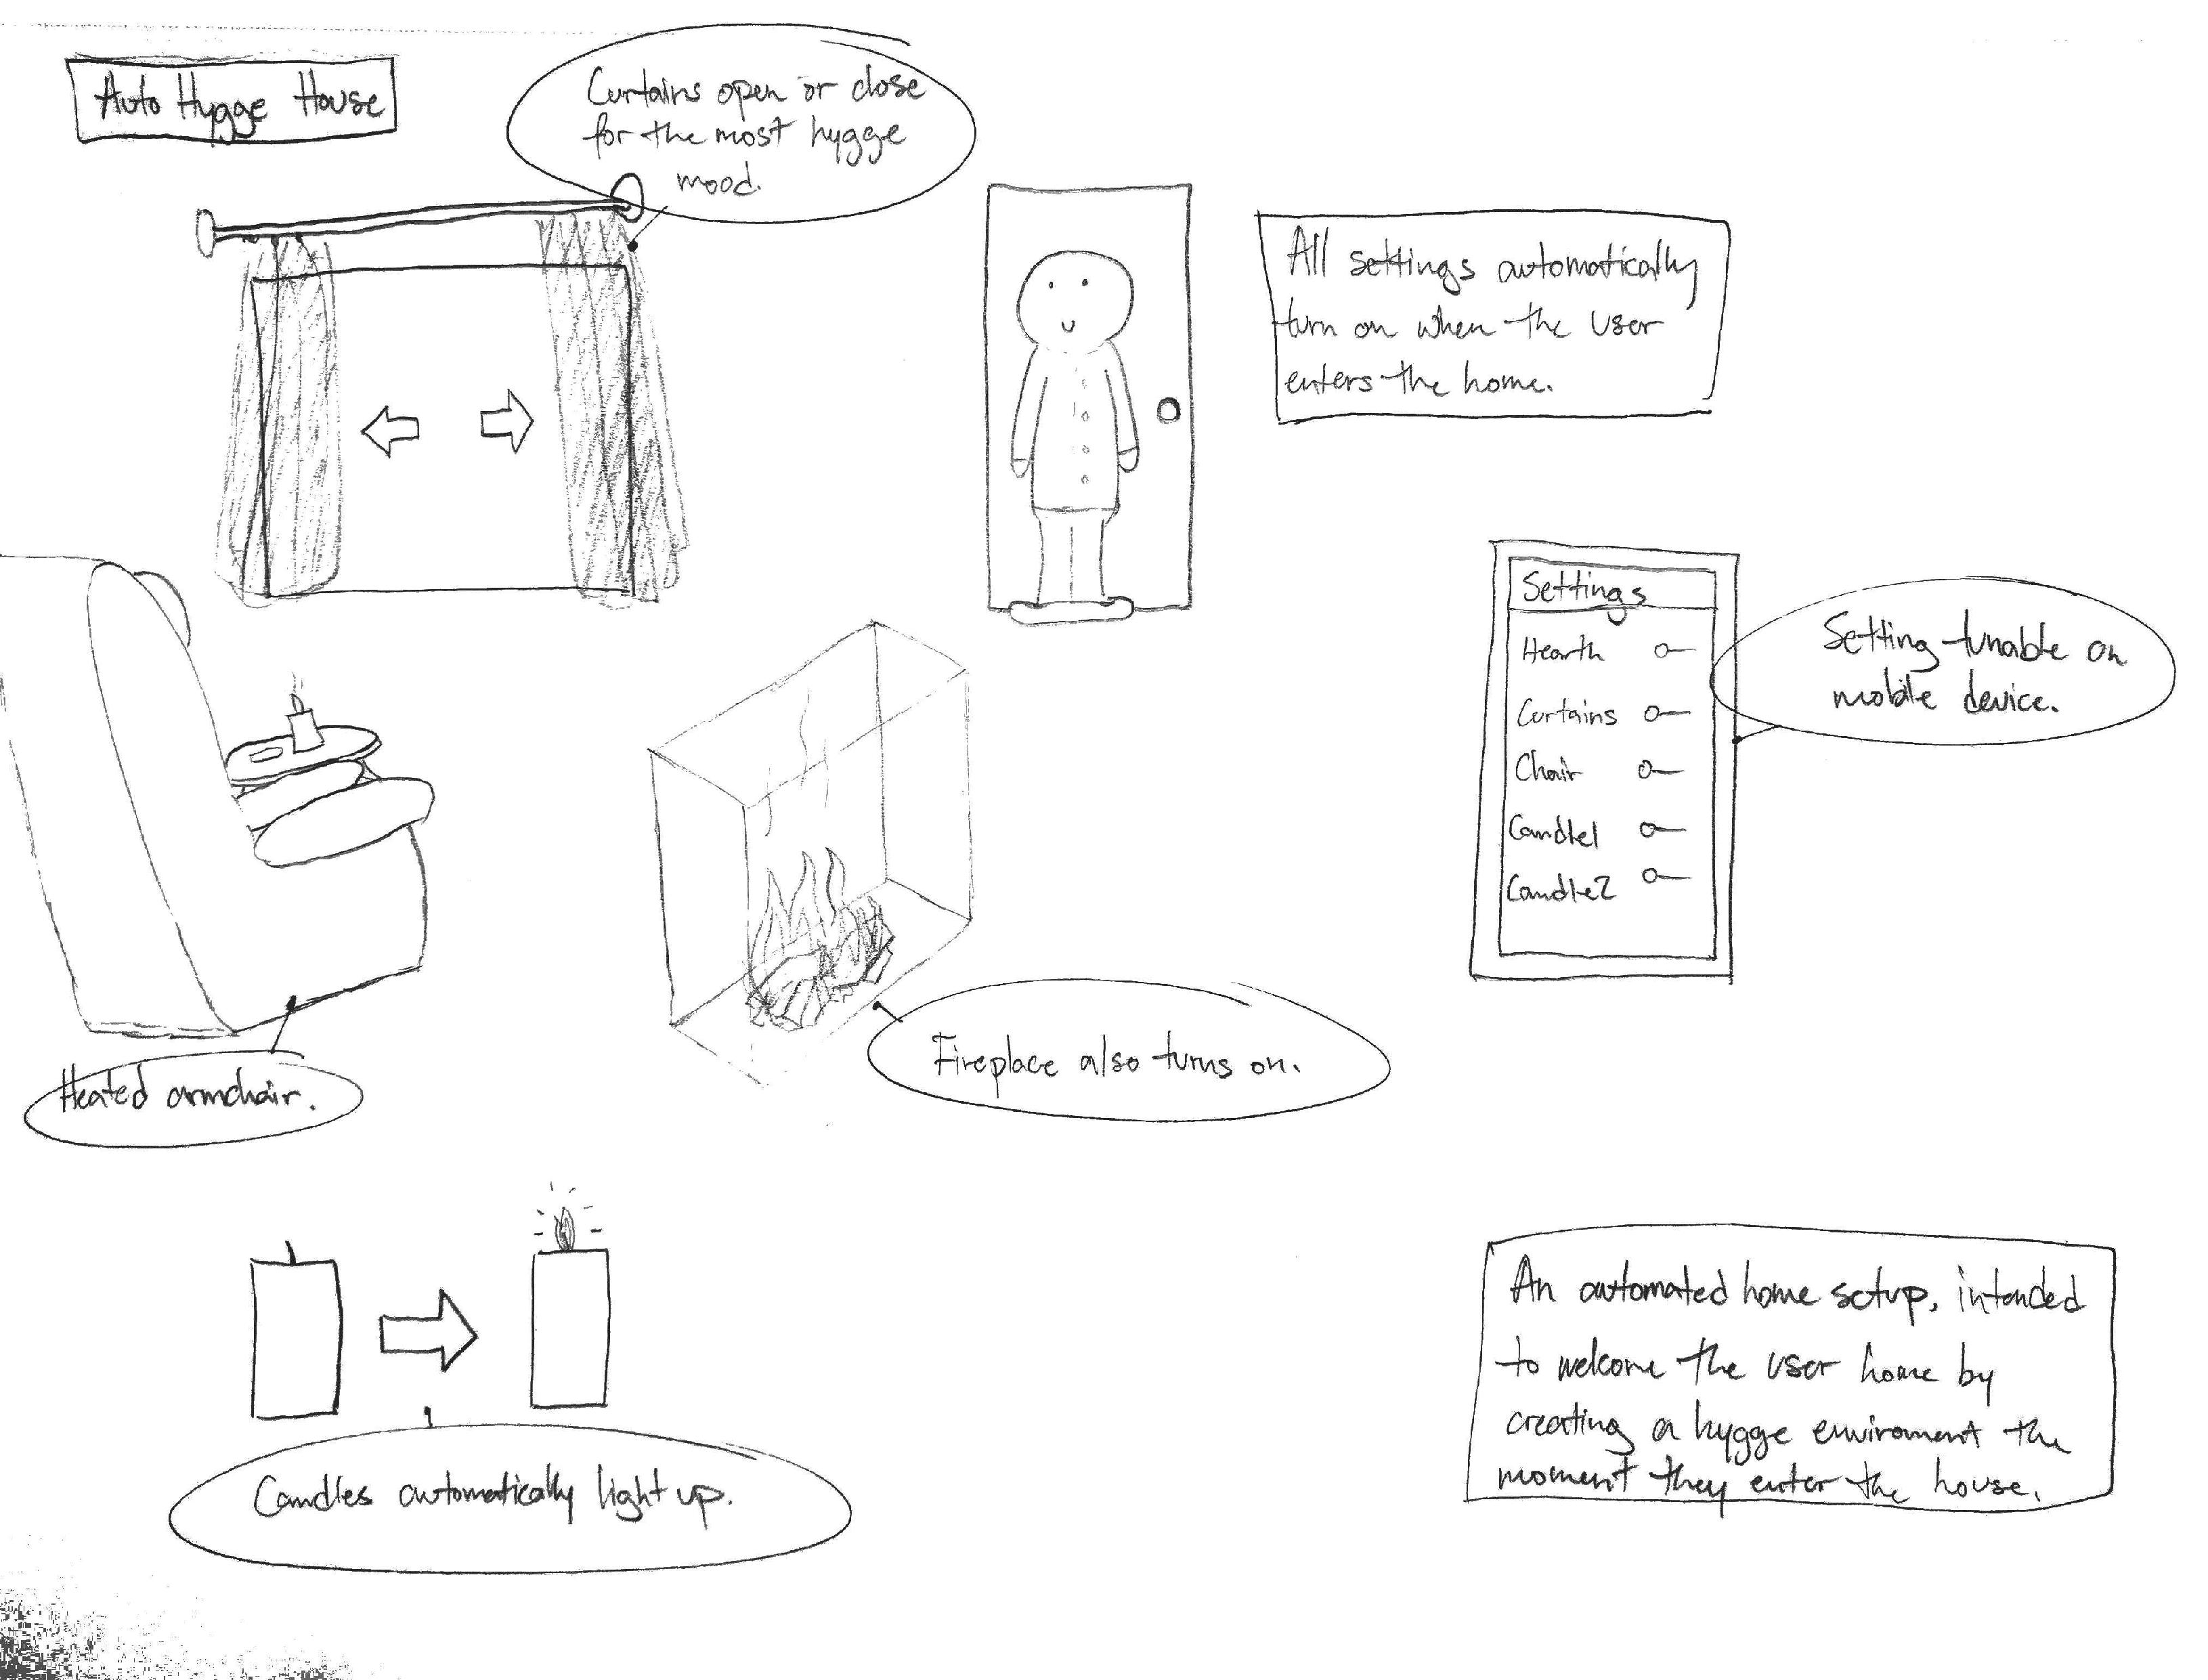 Auto Hygge House
Curtains open or close
for the most hygge
mood.
All settings automatically
turn on when the user
enters the home.
Settings
Hearth
Curtains
Chair
Candle1
Candle2
Setting tunable on
mobile device.
Heated armchair.
Fireplace also turns on.
Candles automatically light up.
An automated home setup, intended
to welcome the user home by
creating a hygge enviroment the
moment they enter the house.